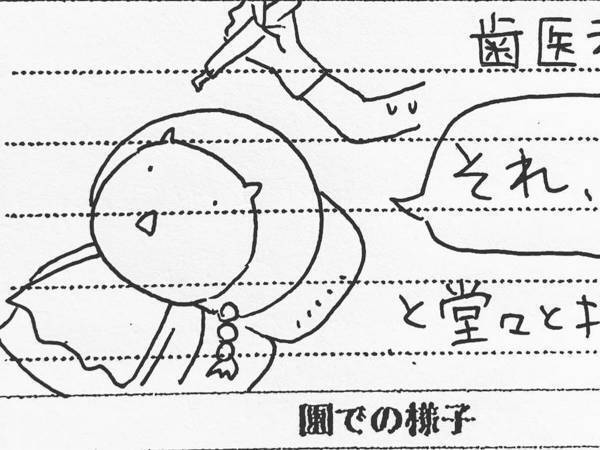 歯医
それ、
と堂々と
園での様子